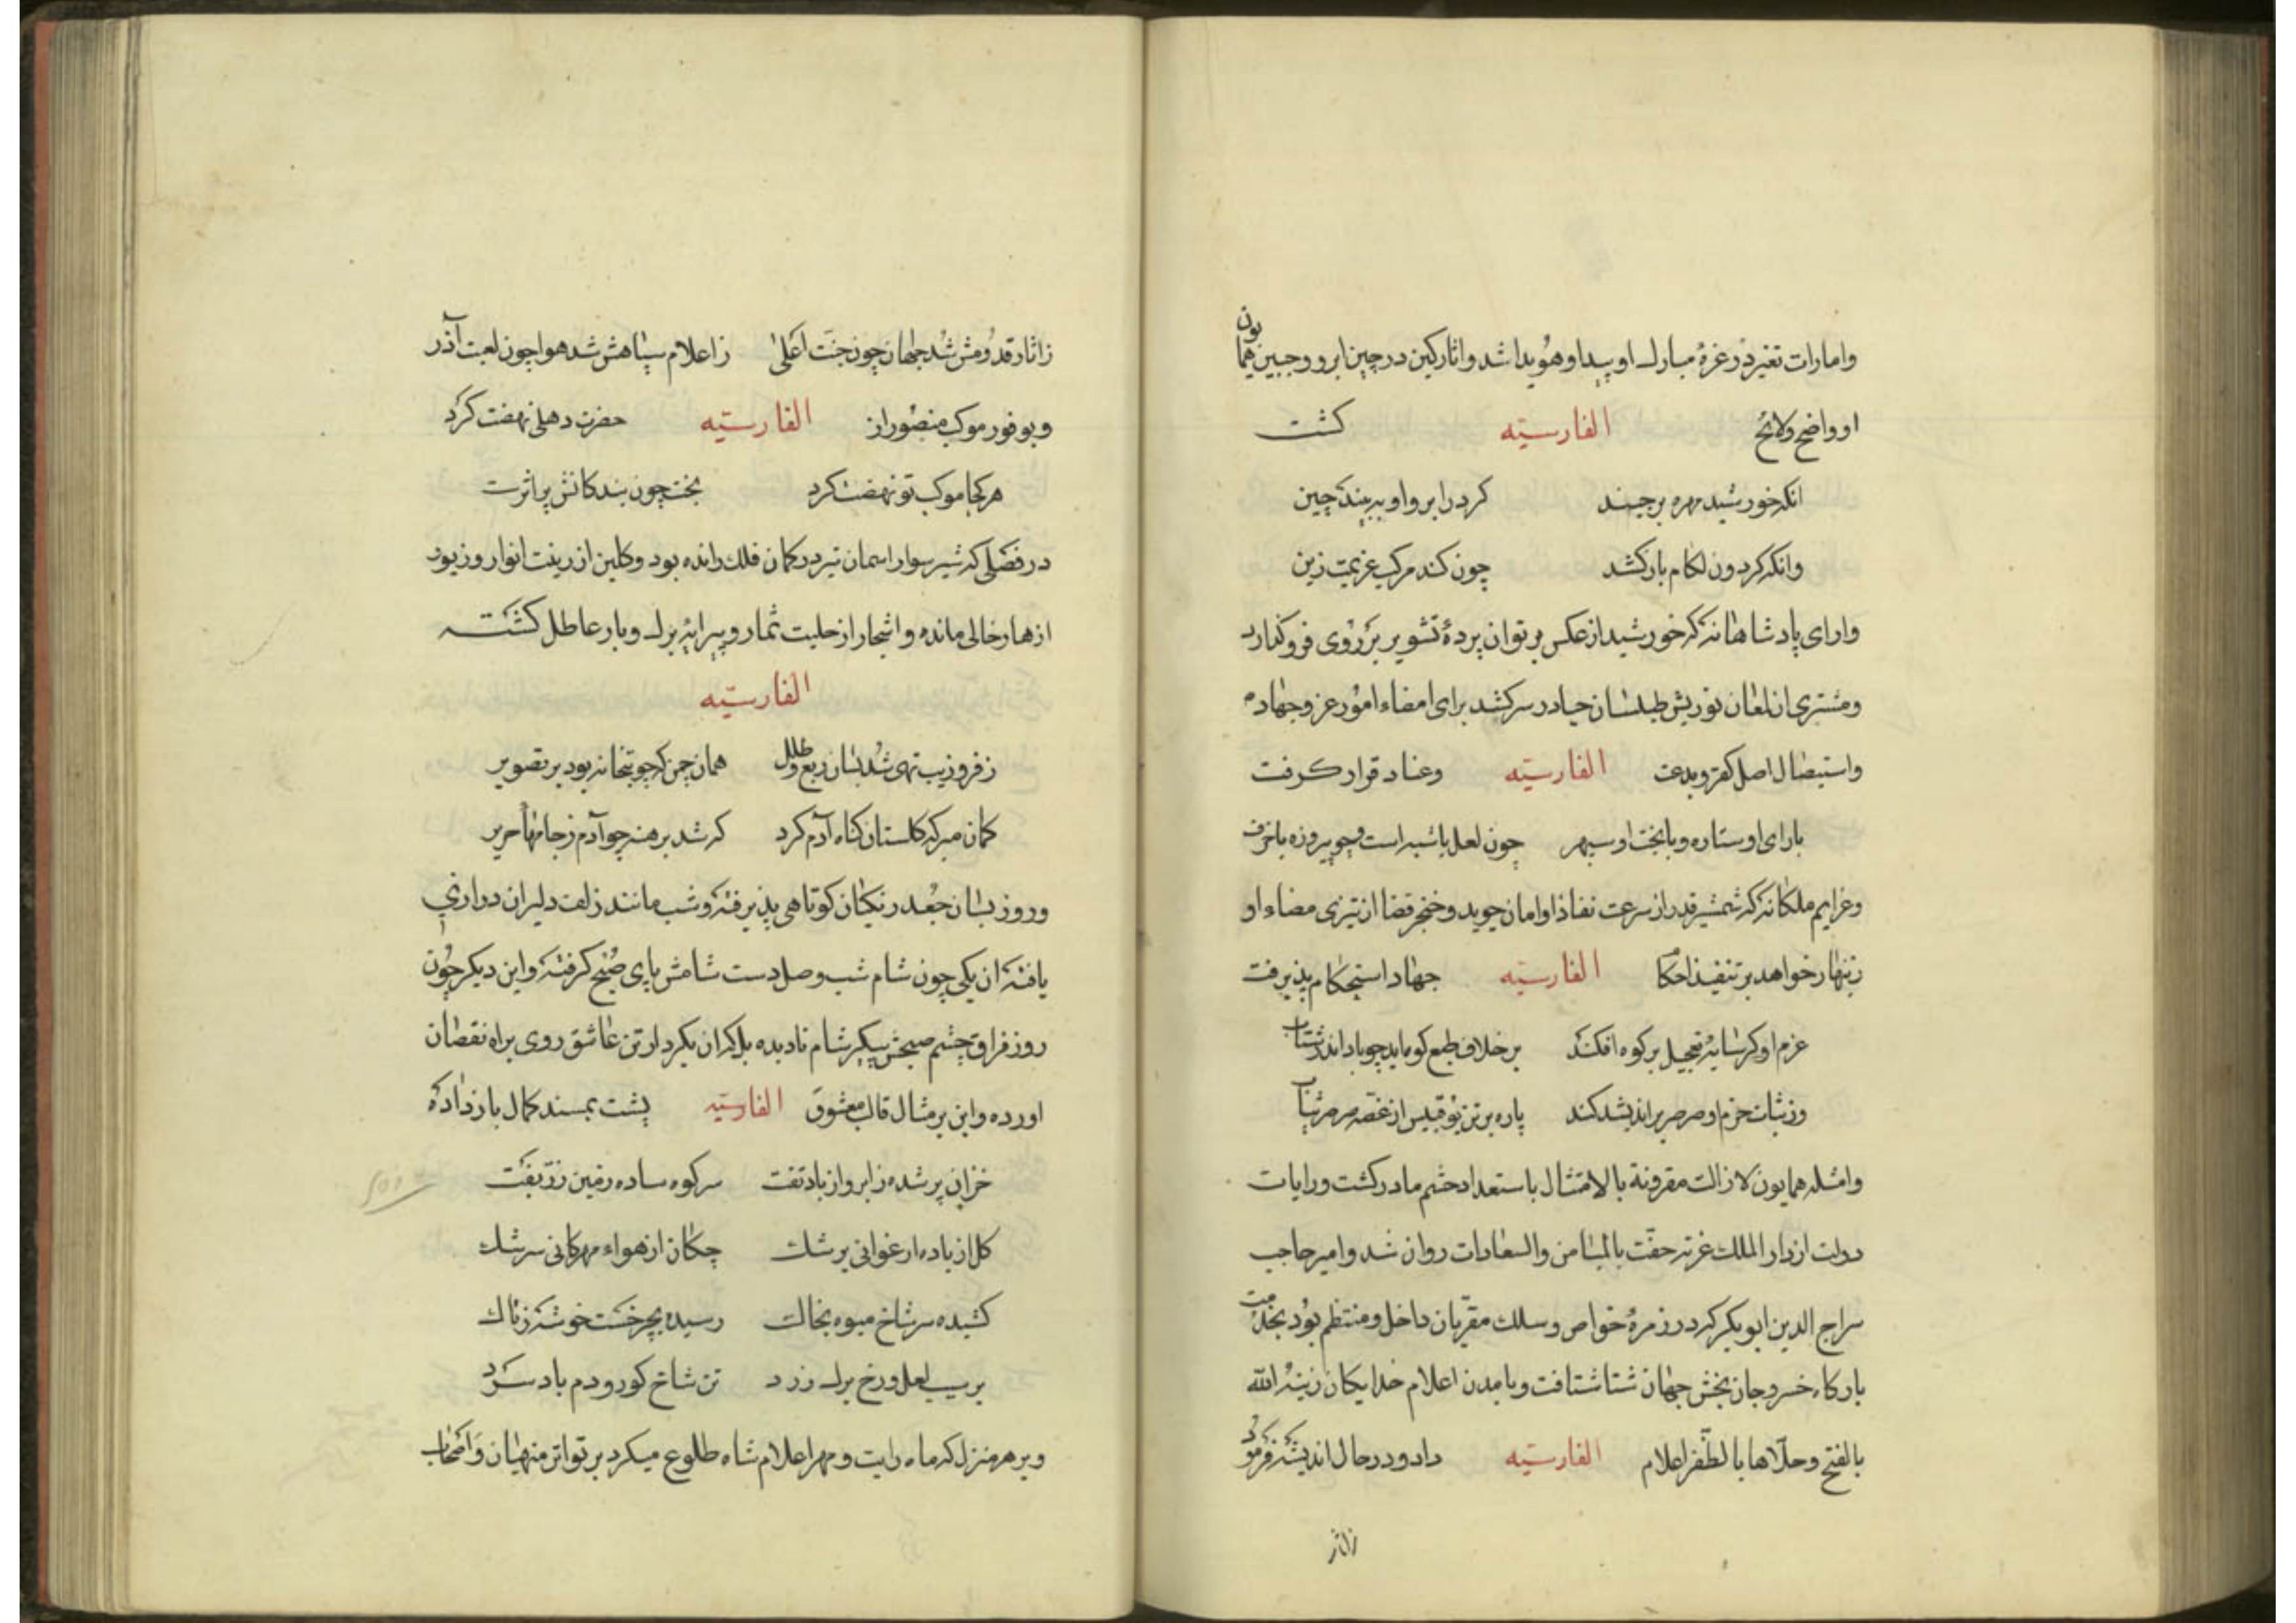 وامارات تغیر در غرهٔ مبارک او پیدا و هویدا شد واثار کین در چین ابرو و جبین همایون
او واضح ولائح الفارسیّه کشت
انکه خورشید مهره برچیند کرد را برو او ببیند چین
وانکه کردون لکام بار کشد چون کند مرکب عزیمت زین
وارای پادشاهانه که خورشید از عکس پرتو ان پردهٔ تشویر بر روی فروکذارد
ومشتری از لمعان نوریش طیلسان حیا در سر کشد برای امضاء امور عز و جهاد
واستیصال اصل کفر و بدعت الفارسیّه وعناد قرار کرفت
بارای او ستاره و با بخت او سپهر چون لعل با شبه است و چو پیروزه با خزف
وعزایم ملکانه که شمشیر قدر از سرعت نفاذ او امان جوید و خنجر قضا از تیزی مضاء او
زینهار خواهد بر تنفیذ احکام الفارسیّه جهاد استحکام پذیرفت
عزم او کر سایهٔ تعجیل بر کوه افکند بر خلاف طبع کوه اید چو باد اندر شتاب
وز ثبات حزم او صرصر بر اندیشد کند
وامثله همایون لازالت مقرونة بالامتثال باستعداد حشم صادر کشت و رایات
دولت از دار الملک غزنه حفّت بالمیامن والسعادات روان شد و امیر حاجب
سراج الدین ابو بکر که در زمرهٔ خواص و سلک مقرّبان داخل و منتظم بود بخدمت
بارکاه خسرو جان بخش جهان ستا شتافت و بامدن اعلام خدایکان زینه الله
بالفتح وحلّاها بالظّفر اعلام الفارسیّه داد و در حال اندیشه فرمود
زاثار
زاثار قدومش شد جهان چون جنّت اعلی زاعلام سپاهش شد هوا چون لعبت آذر
وبوفور موکب منصور از الفارسیّه حضرت دهلی نهضت کرد
هر کجا موکب تو نهضت کرد بخت چون بندکانش بر اثرت
در فصلی که شیر سوار اسمان تیر در کمان فلک رانده بود و کلبن از زینت انوار و زیور
ازهار خالی مانده و اشجار از حلیت ثمار و پیرایهٔ برک و بار عاطل کشته
الفارسیّه
ز فر و زیب تهی شد بسان ربع و طلل همان چمن که چو بتخانه بود بر تصویر
کمان مبر که کلستان کناه آدم کرد که شد برهنه چو آدم ز جامهاء حریر
وروز بسان جعد زنکیان کوتاهی پذیرفته و شب مانند زلف دلبران درازی
یافته ان یکی چون شام شب وصل دست شامش پای صبح کرفته و این دیکر چون
روز فراق چشم صبحش پیکر شام نادیده بلکه ان بکردار تن عاشق روی براه نقصان
اورده و این بر مثال قالب معشوق الفارسیّه پشت بمسند کمال باز داده
خزان پر شده ز ابر و از باد تفت سر کوه ساده زمین زرّبفت
کل از باده ارغوانی برشک چکان از هواء مهرکانی سرشک
کشیده سر شاخ میوه بخاک رسیده بچرخشت خوشه ز تاک
بر سیب لعل و رخ برک زرد تن شاخ کوز و دم باد سرد
وبر هر منزل که ماه رایت و مهر اعلام شاه طلوع میکرد بر تواتر منهیان و اصحاب